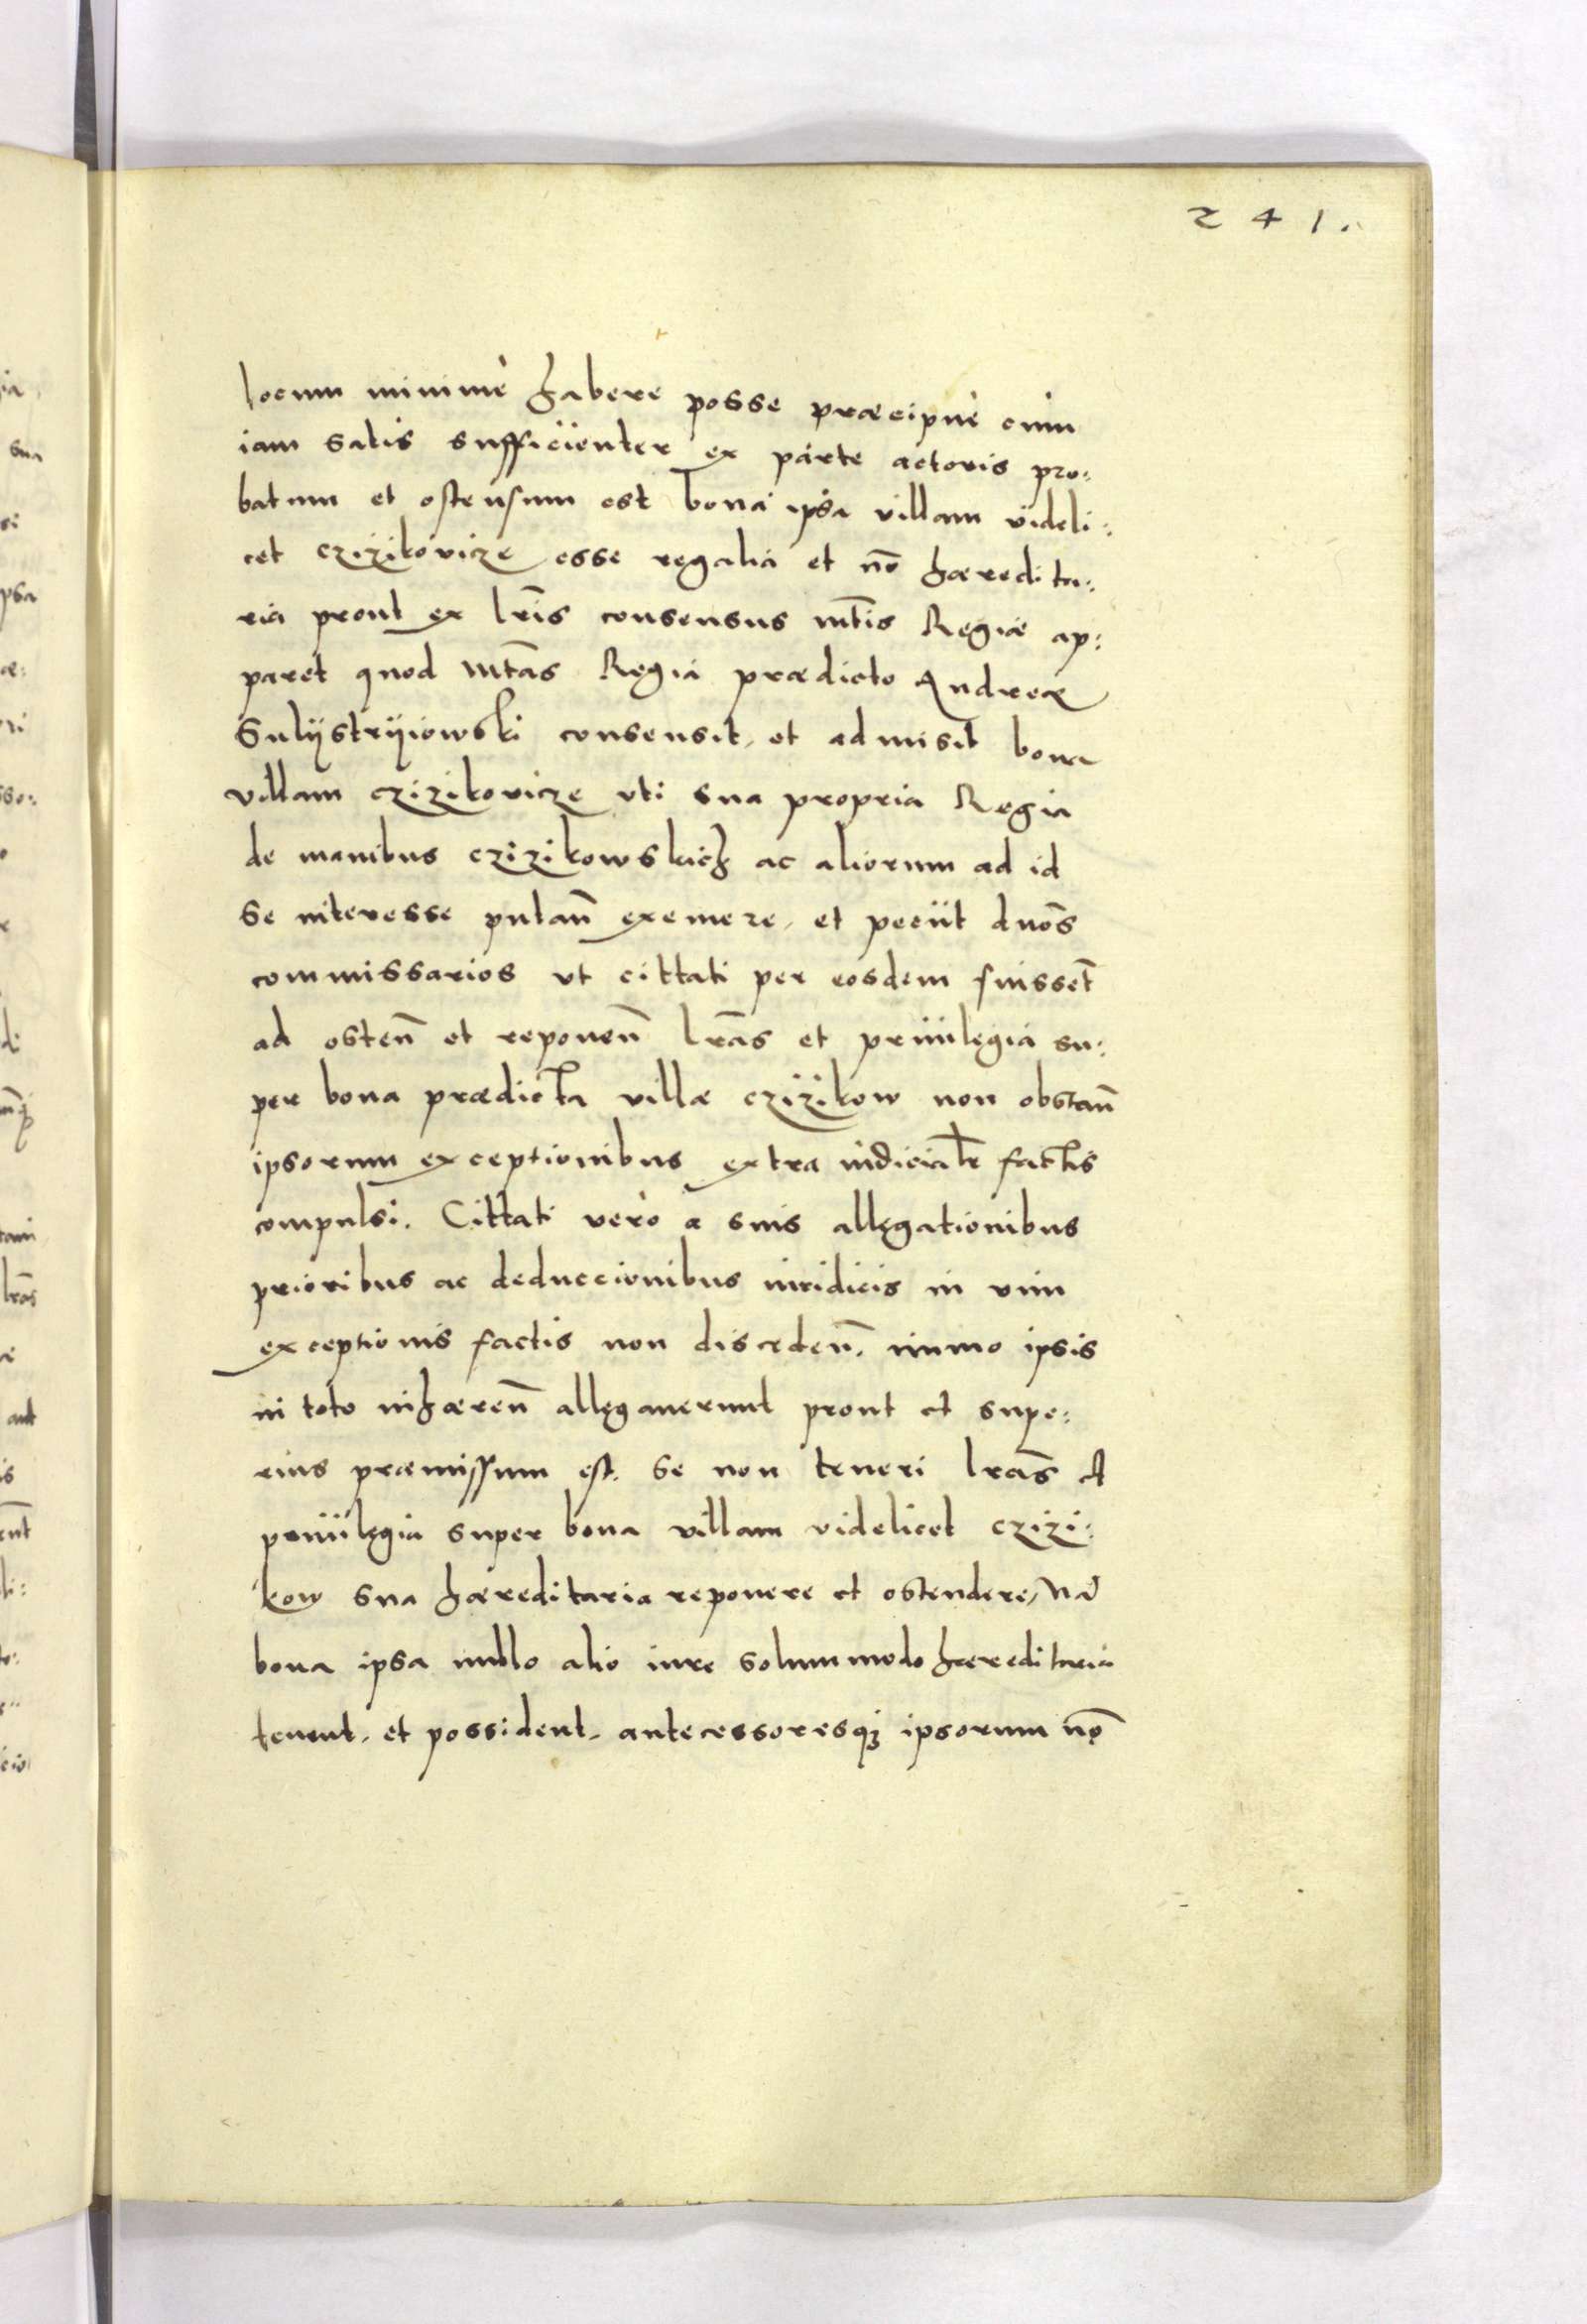 241.
locum minimè habere posse præcipuè cùm
iam satis sufficienter ex parte actoris pro:
batum et ostensum est bona ipsa villam videli:
cet Czizikovicze esse regalia et nõ hæredita:
ria prout ex lr̃is consensus Mt̃is Regiæ ap:
paret quod Mt̃as Regia prædicto Andreæ
Sulijstrijiowski consensit, et admisit bona
villam Czizikovicze uti sua propria Regia
de manibus Czizikowskich ac aliorum ad id
se interesse putañ exemere, et peciit dnõs
commissarios ut cittati per eosdem fuisset̃
ad osteñ et reponeñ lr̃as et priuilegia su:
per bona prædicta villæ Czizikow non obstañ
ipsorum exceptionibus extra iudicialr̃ factis
compulsi. Cittati verò a suis allegationibus
prioribus ac deduccionibus iuridicis in vim
exceptionis factis non discedeñ. immo ipsis
in toto inhæreñ allegauerunt prout et supe:
rius præmissum est. se non teneri lr̃as et
priuilegia super bona villam videlicet Czizi:
kow sua hæreditaria reponere et ostendere, Nã
bona ipsa nullo alio iure solummodo hæreditaria
tenent, et possident, antecessoresq; ipsorum nõ